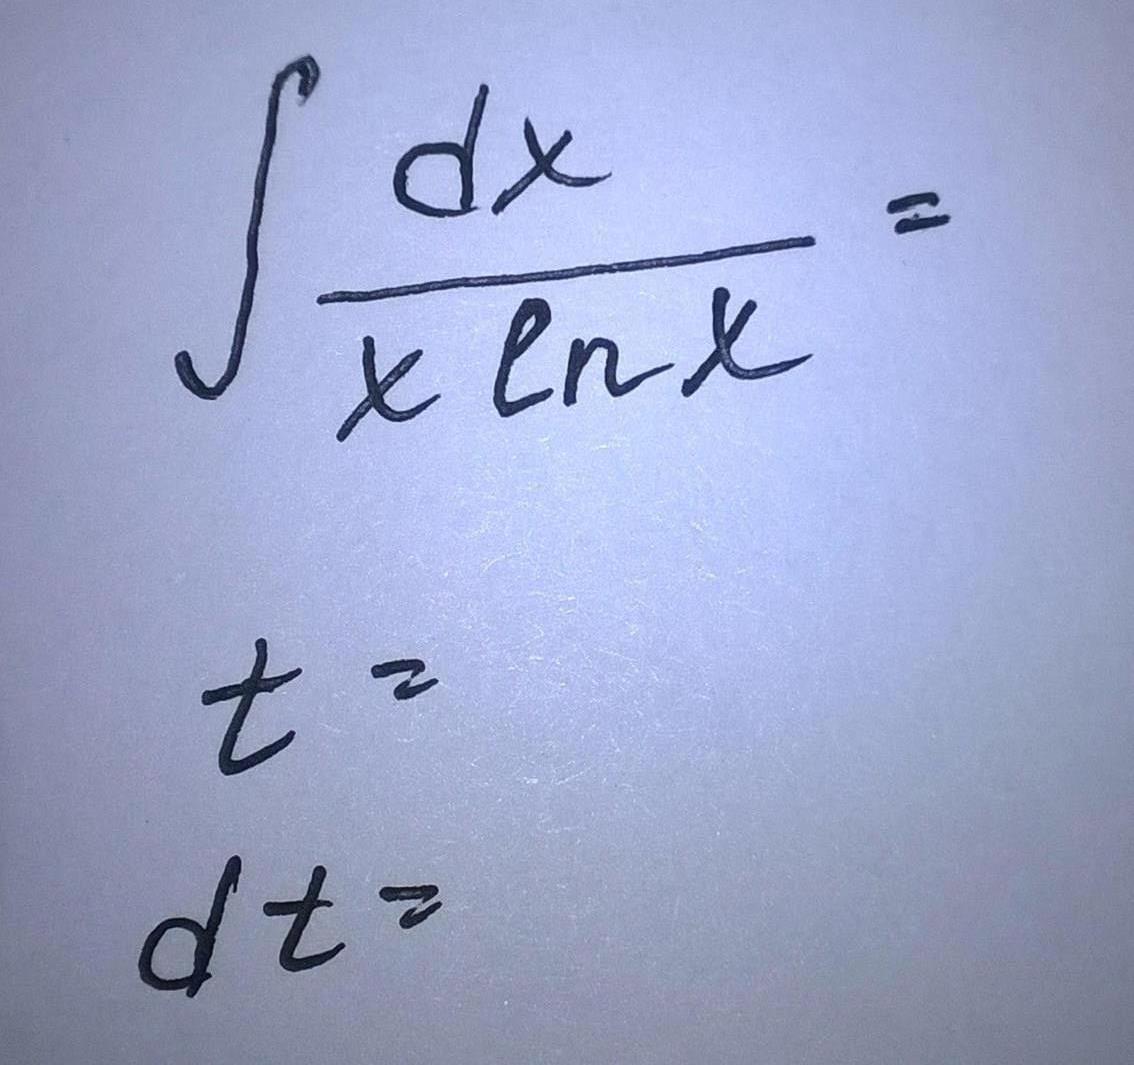 ∫ dx / (x ln x) =
t =
dt =